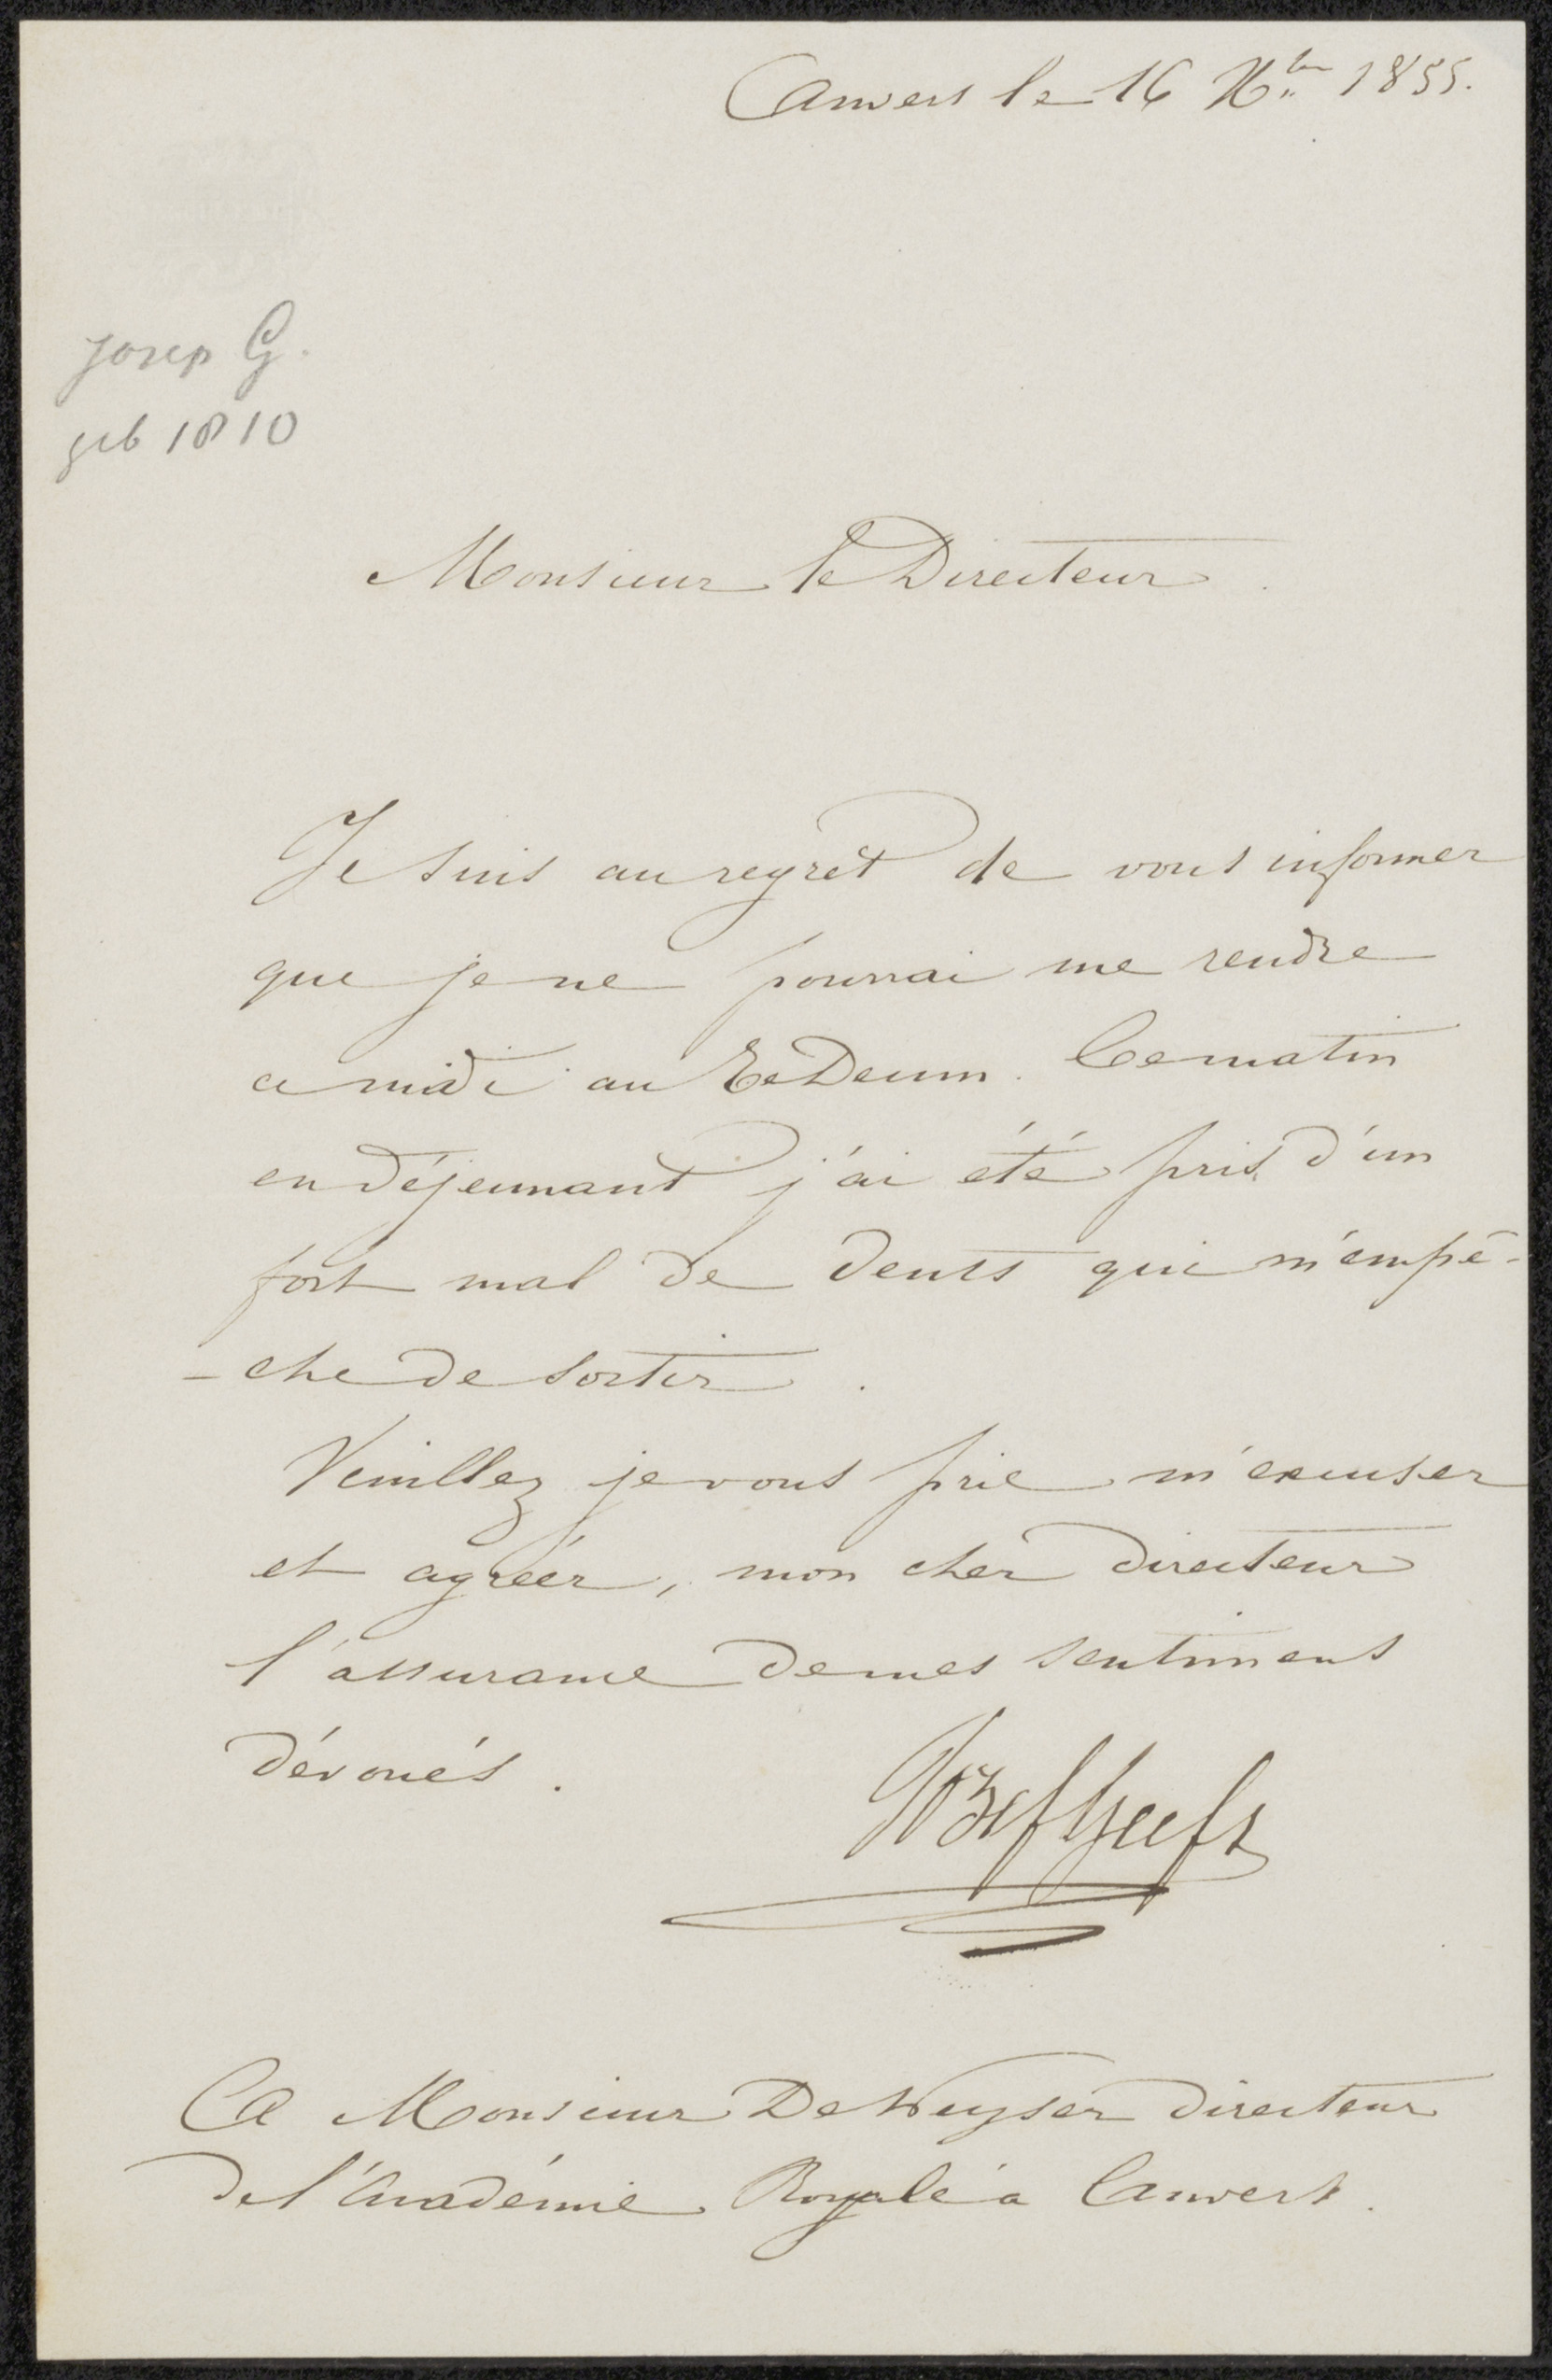 Anvers le 16 Xbre 1855.
Josep G.
geb 1810
Monsieur le Directeur.
Je suis au regrèt de vous informer
que je ne pourrai me rendre
a midi au Te Deum. Ce matin
en déjeunant j'ai été pris d'un
fort mal de dents qui m'empê-
-che de sortir.
Veuillez je vous prie m'excuser
et agréér, mon cher directeur
l'assurance de mes sentiments
dévoués.
Jozef Geefs
A Monsieur De Keyser directeur
de l'Académie Royale à Anvers.